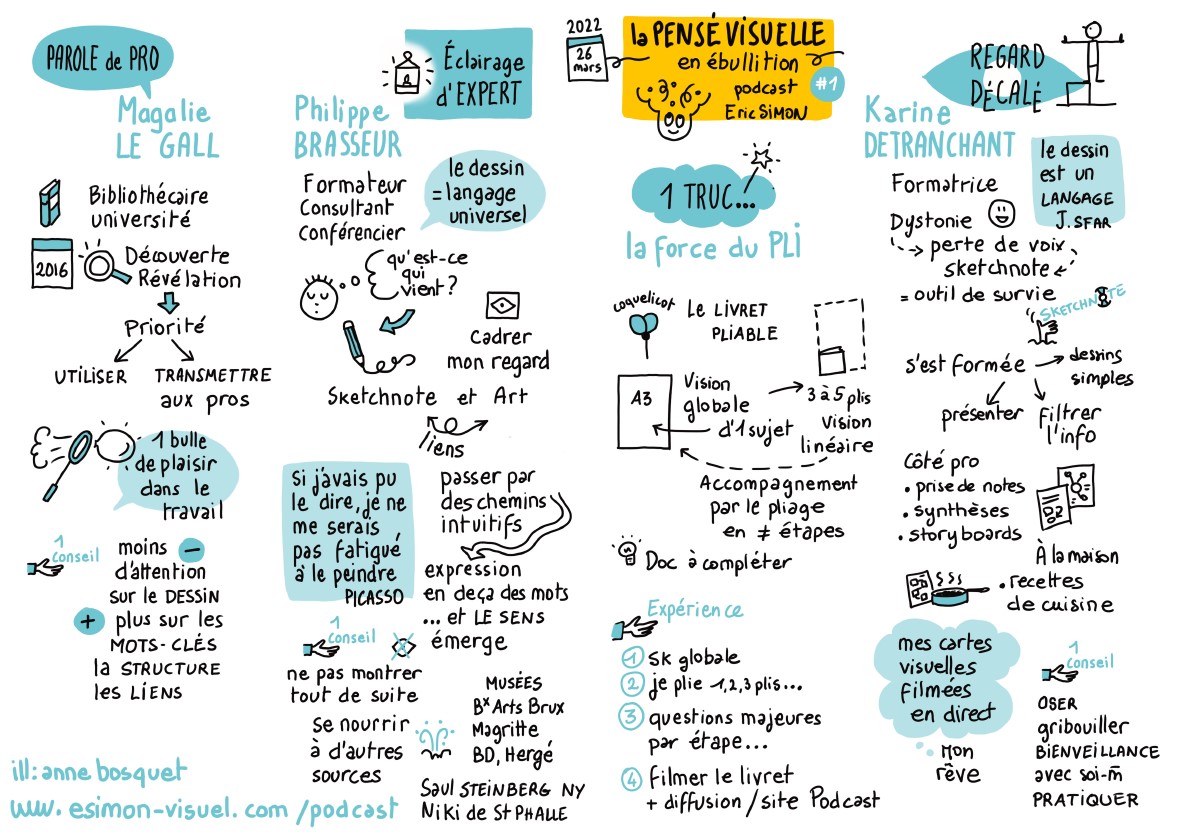 PAROLE de PRO
Magalie
LE GALL
Bibliothécaire
université
2016
Découverte
Révélation
Priorité
UTILISER
TRANSMETTRE
aux pros
1 bulle
de plaisir
dans le
travail
1
conseil
moins -
d'attention
sur le DESSIN
+ plus sur les
MOTS-CLÉS
la STRUCTURE
les LIENS
ill: anne bosquet
www.esimon-visuel.com/podcast
Éclairage
d'EXPERT
Philippe
BRASSEUR
Formateur
Consultant
Conférencier
le dessin
= langage
universel
qu'est-ce
qui
vient ?
Cadrer
mon regard
Sketchnote et Art
liens
si j'avais pu
le dire, je ne
me serais
pas fatigué
à le peindre
PICASSO
passer par
des chemins
intuitifs
expression
en deça des mots
... et LE SENS
émerge
1
conseil
ne pas montrer
tout de suite
se nourrir
à d'autres
sources
MUSÉES
Bx Arts Brux
Magritte
BD, Hergé
Saul STEINBERG NY
Niki de St PHALLE
2022
26
mars
la PENSÉ VISUELLE
en ébullition
podcast
Eric SIMON
#1
1 TRUC...
la force du PLI
coquelicot
LE LIVRET
PLIABLE
A3
Vision
globale
d'1 sujet
3 à 5 plis
Vision
linéaire
Accompagnement
par le pliage
en ≠ étapes
Doc à compléter
Expérience
1 SK globale
2 je plie 1,2,3 plis...
3 questions majeures
par étape...
4 filmer le livret
+ diffusion / site Podcast
REGARD
DÉCALÉ
Karine
DETRANCHANT
le dessin
est un
LANGAGE
J. SFAR
Formatrice
Dystonie
perte de voix
sketchnote
= outil de survie
SKETCHNOTE
s'est formée
dessins
simples
présenter
Filtrer
l'info
Côté pro
• prise de notes
• synthèses
• story boards
À la maison
• recettes
de cuisine
mes cartes
visuelles
filmées
en direct
Mon
rêve
1
conseil
OSER
gribouiller
BIENVEILLANCE
avec soi-m̄
PRATIQUER